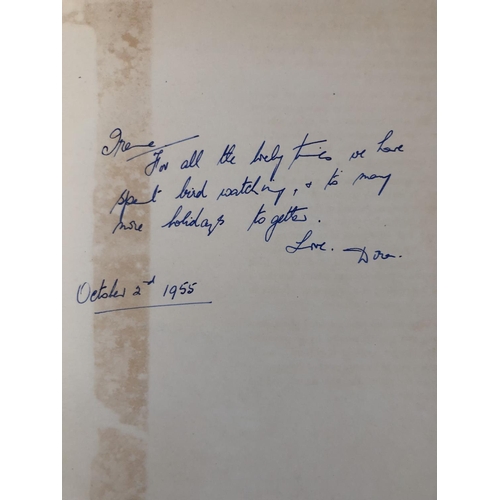 Irene
For all the lovely times we have
spent bird watching, & to many
more holidays together.
Love. Dora.
October 2nd 1955